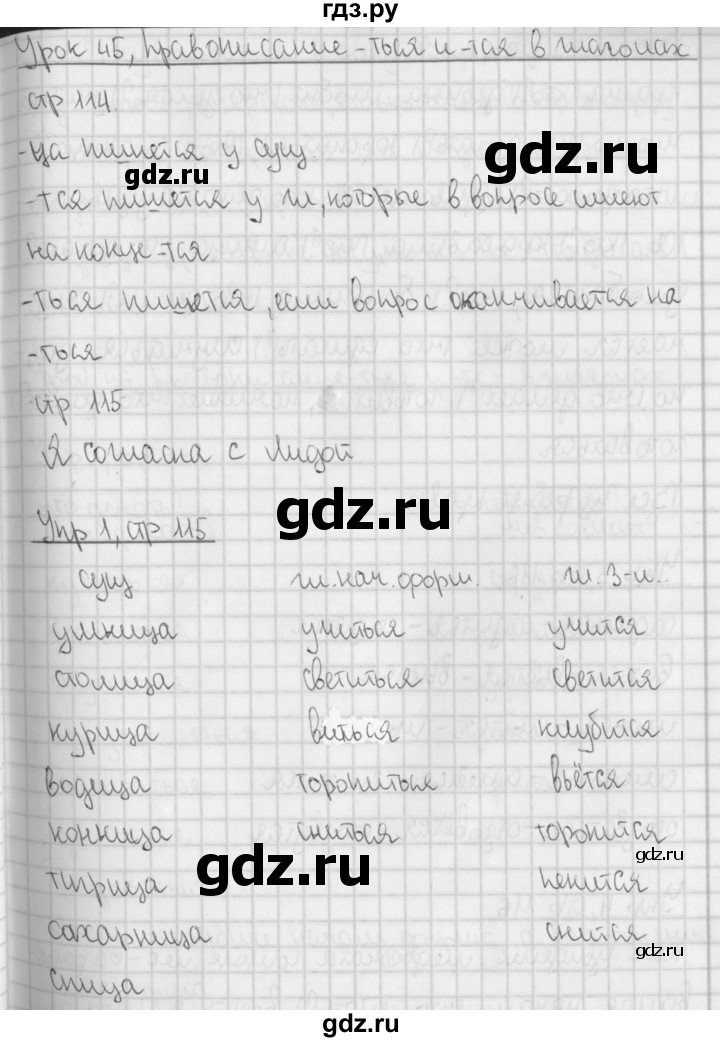 гдз.ру
Урок 45, Правописание -ться и -тся в глаголах
стр 114.
gdz.ru
-ца пишется у сущ.
gdz.ru
-тся пишется у гл, которые в вопросе имеют
на конце -тся
-ться пишется, если вопрос оканчивается на
-ться
стр 115
Я согласна с Лидой
gdz.ru
Упр 1, стр 115
сущ гл. нач. форм. гл. 3-л.
умница учиться учится
столица светиться светится
курица виться клубится
водица торопиться вьётся
конница сниться торопится
gdz.ru
gdz.ru
тигрица пенится
сахарница снится
gdz.ru
спица
gdz.ru